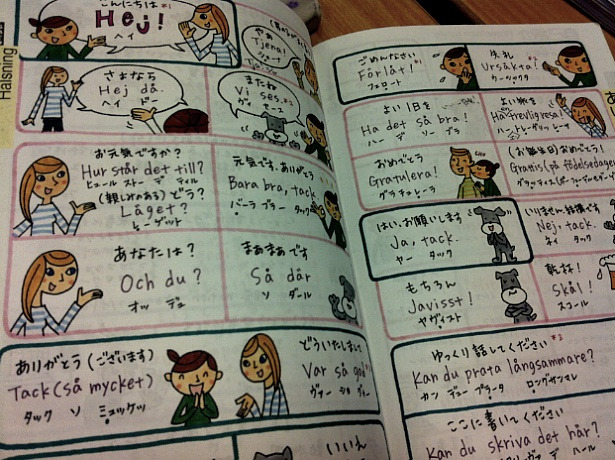 Hälsning
こんにちは*1
Hej!
ヘイ
やあ
Tjena!
さよなら
Hej då.
ヘイ ドー
またね
Vi ses.*2
お元気ですか?
Hur står det till?
ヒュール ストー デ ティル
(親しみのある)どう?
Läget?
レーゲット
元気です、ありがとう
Bara bra, tack
バーラ ブラー タック
あなたは?
Och du?
オッ デュ
まあまあです
Så där
ソ ダール
ありがとう(ございます)
Tack(så mycket)
タック ソ ミュッケッ
どういたしまして
Var så god
ヴァー ショ グー
いいえ
ごめんなさい
Förlåt!*1
フェロート
失礼
Ursäkta!
ウーシックタ
よい1日を
Ha det så bra!
ハー デ ソー ブラ
よい旅を
Ha trevlig resa!
ハー トレーヴリグ レーサ
おめでとう
Gratulera!
グラチュレーラ
(お誕生日)おめでとう
Grattis(på födelsedagen
はい、お願いします
Ja, tack.
ヤー タック
いりません、結構です
Nej, tack.
ネイ タック
もちろん
Javisst!
ヤヴィスト
乾杯!
Skål!
スコール
ゆっくり話してください*3
Kan du prata långsammare?
カン デュー プラータ ロングサンマレ
ここに書いてください
Kan du skriva det här?